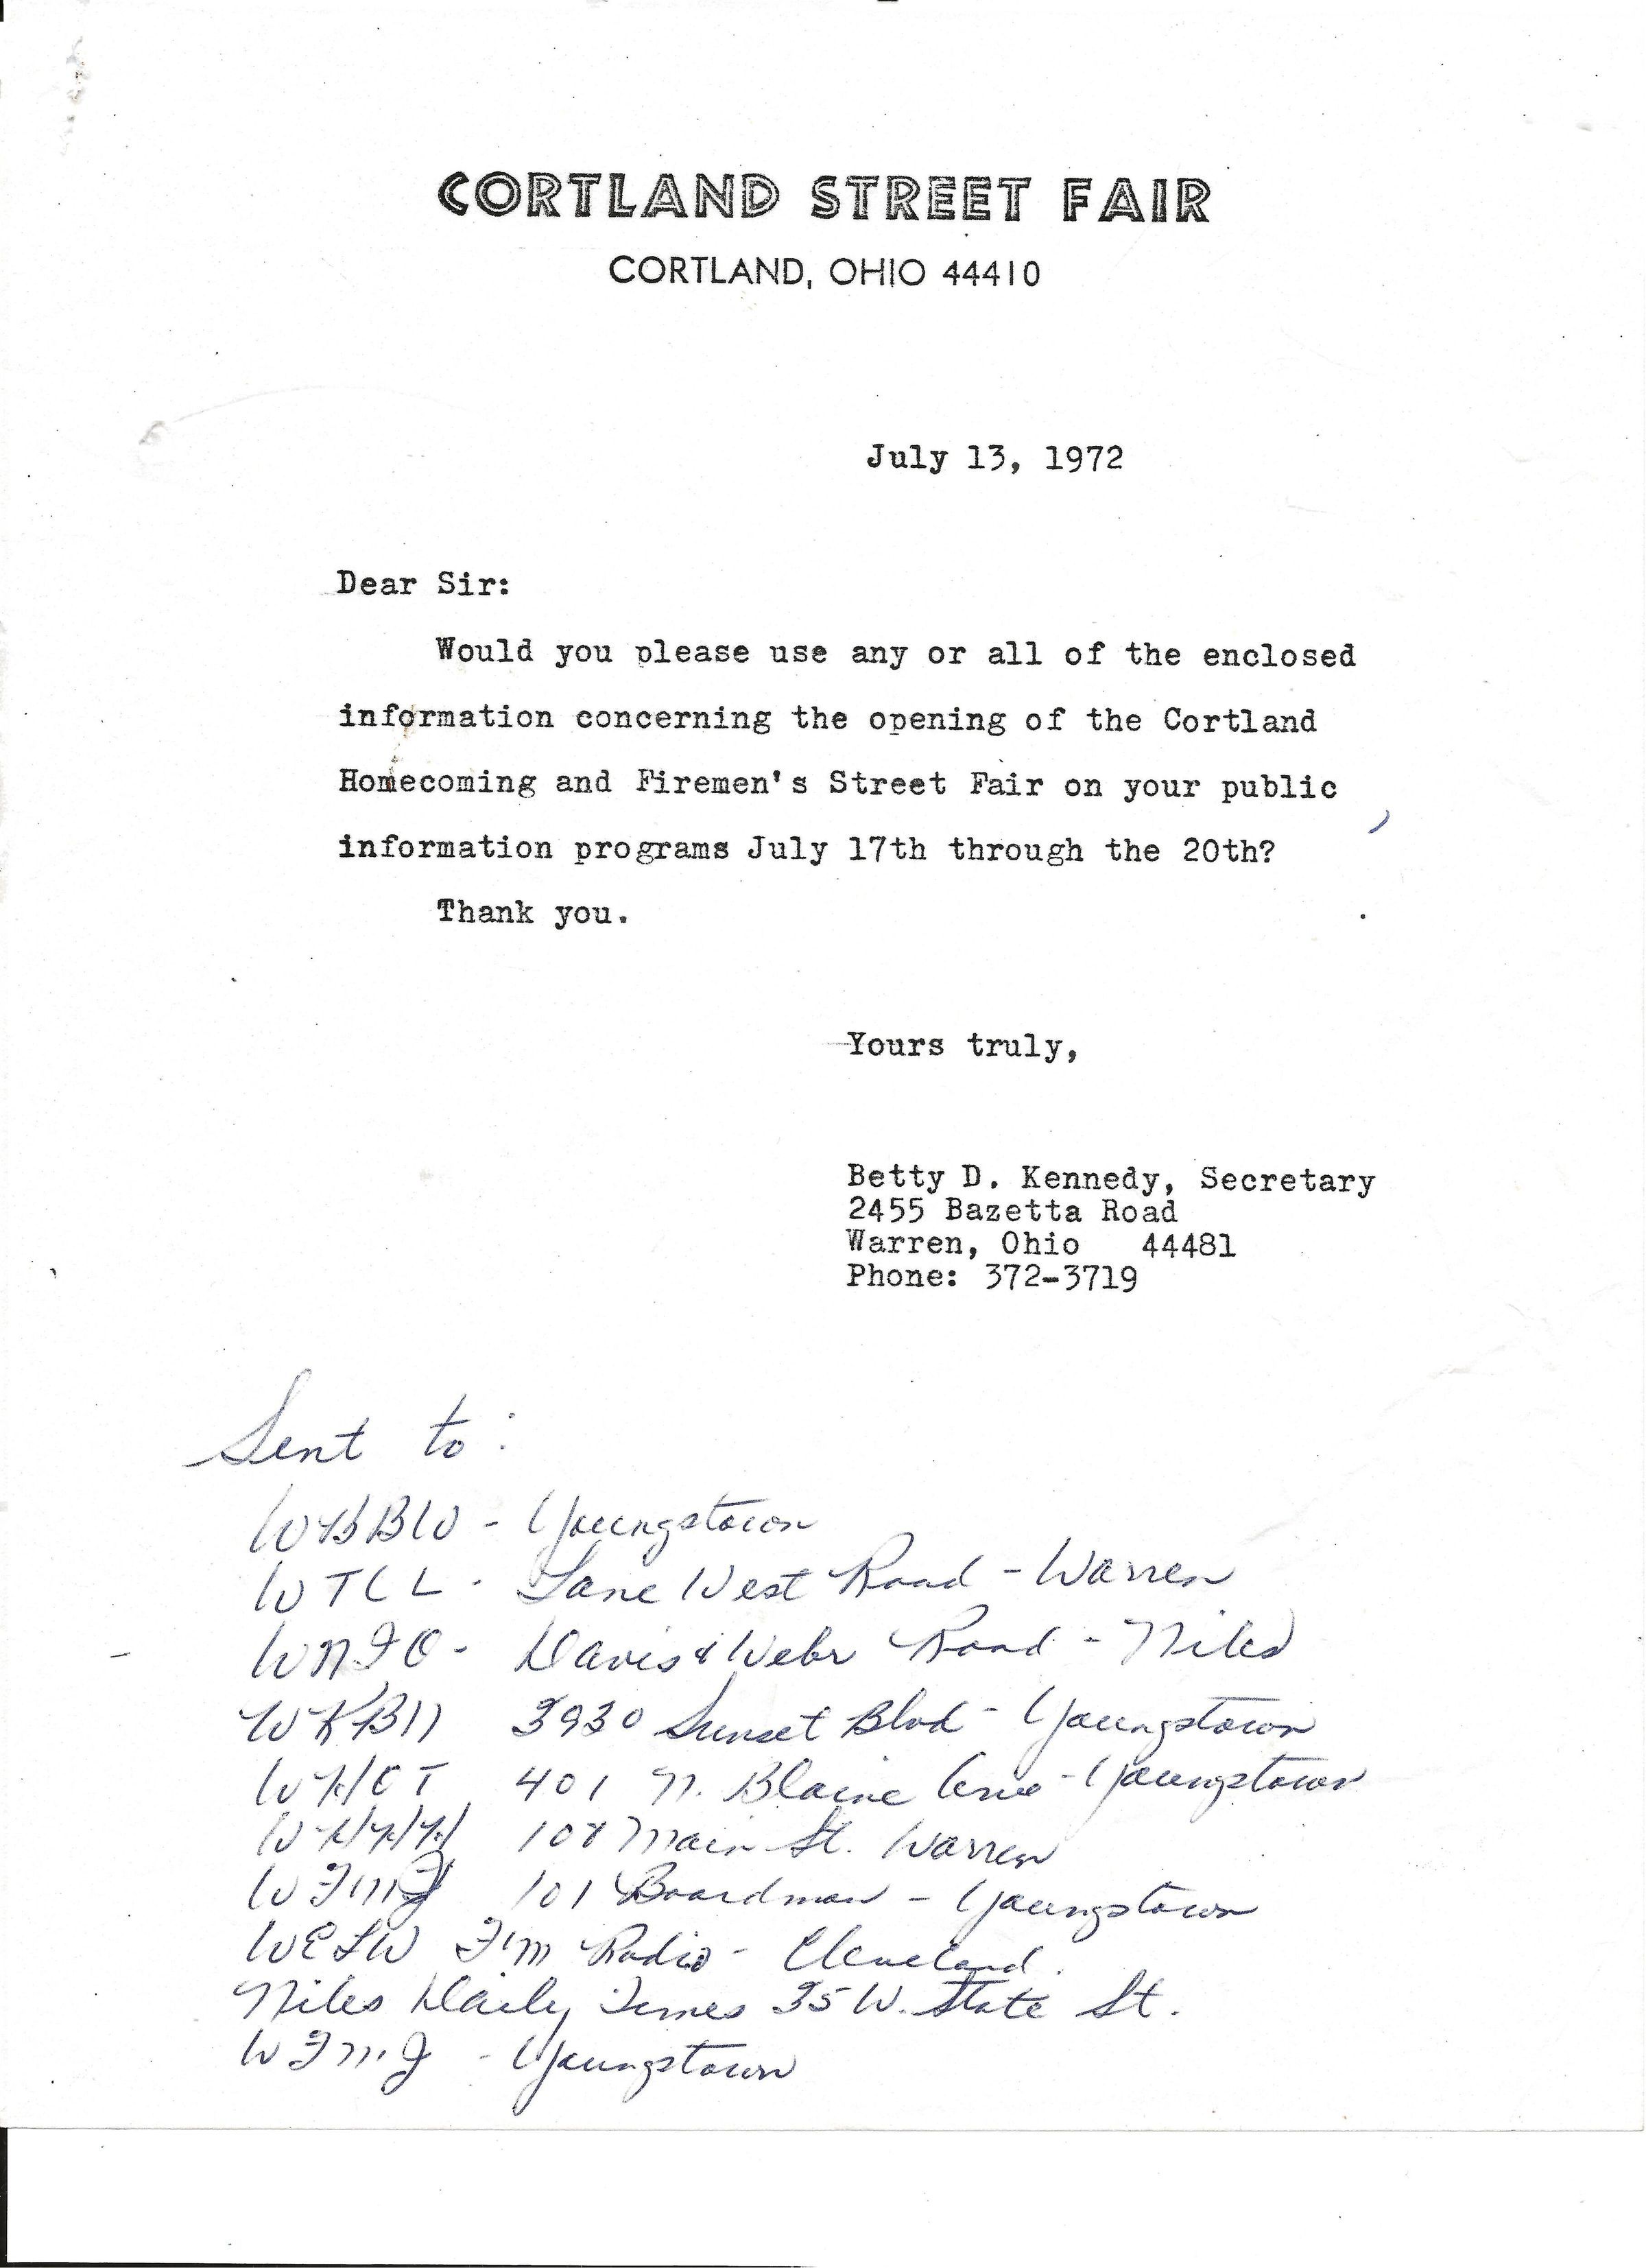 CORTLAND STREET FAIR
CORTLAND, OHIO 44410
July 13, 1972
Dear Sir:
Would you please use any or all of the enclosed
information concerning the opening of the Cortland
Homecoming and Firemen's Street Fair on your public
information programs July 17th through the 20th?
Thank you.
Yours truly,
Betty D. Kennedy, Secretary
2455 Bazetta Road
Warren, Ohio 44481
Phone: 372-3719
Sent to:
WBBW - Youngstown
WTCL - Lane West Road - Warren
WNIO - Davis & Webr Road - Niles
WKBN 3930 Sunset Blvd - Youngstown
WHOT 401 N. Blaine Ave - Youngstown
WHHH 108 Main St. Warren
WFMJ 101 Boardman - Youngstown
FM Radio - Cleveland.
Niles Daily Times 35 W. State St.
WFMJ - Youngstown